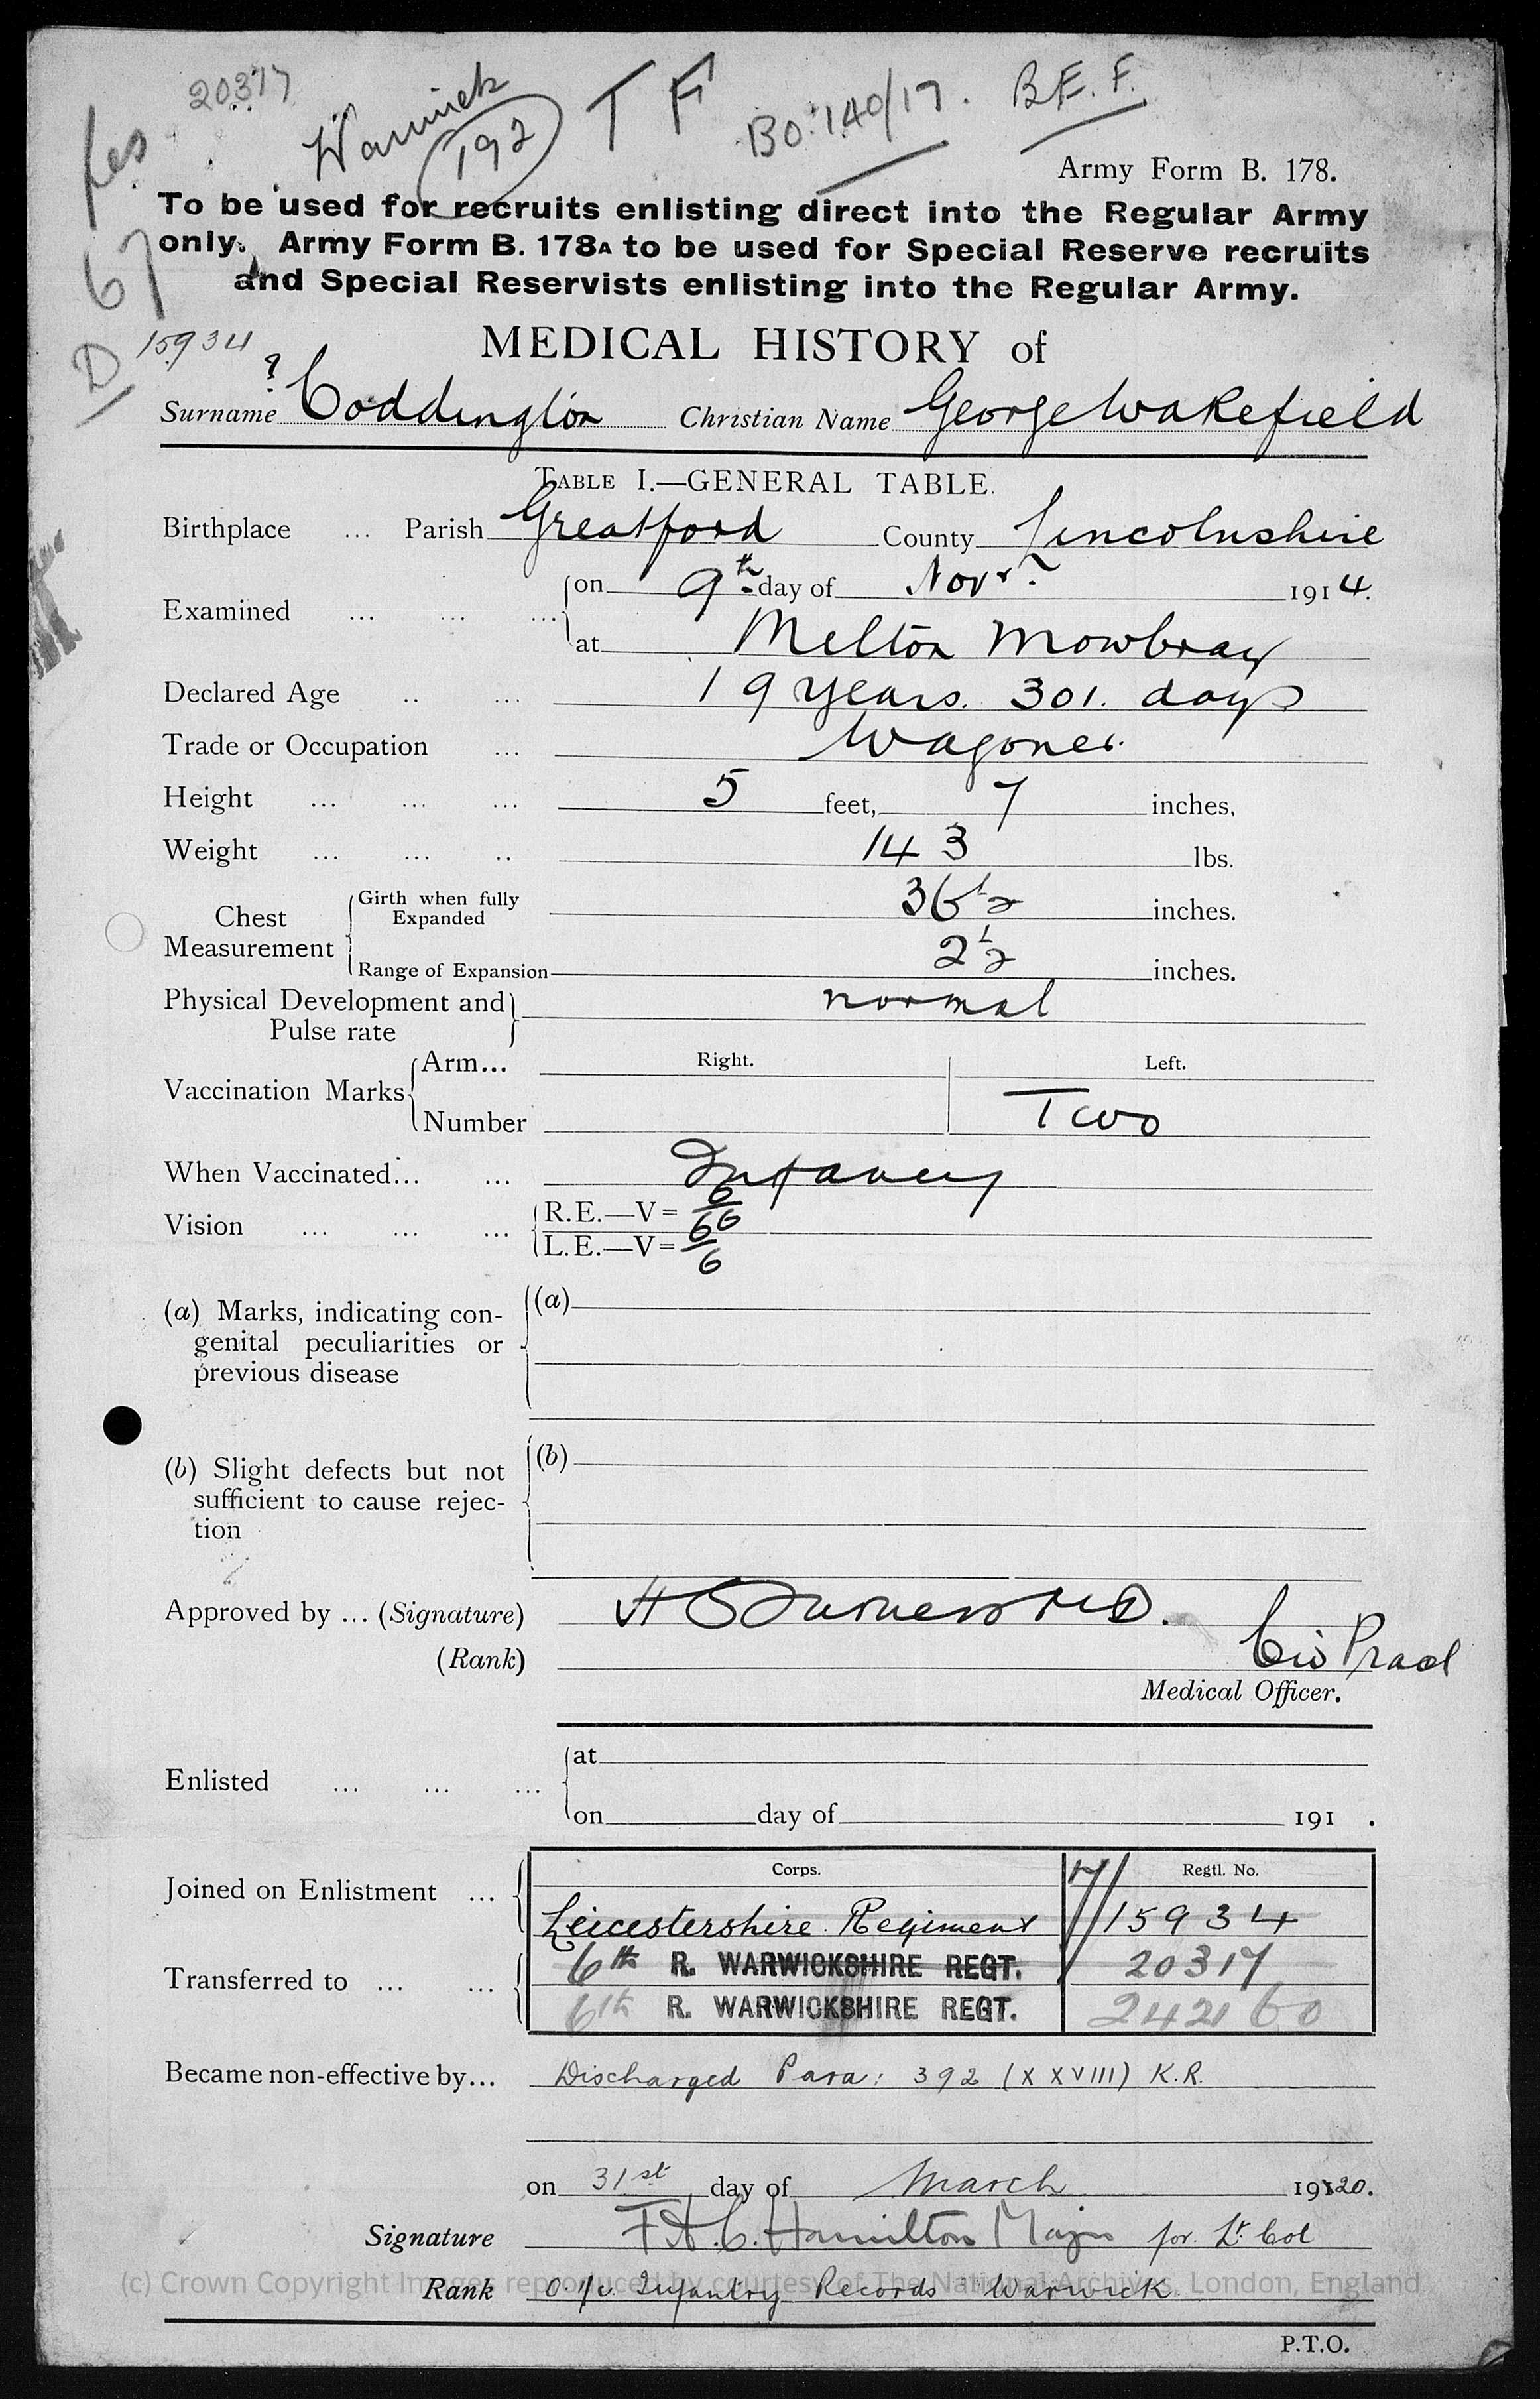 20317
Warwick
192
T F
BO. 140/17.
B.E.F.
Army Form B. 178.
To be used for recruits enlisting direct into the Regular Army
only. Army Form B. 178A to be used for Special Reserve recruits
and Special Reservists enlisting into the Regular Army.
D 67
15934
MEDICAL HISTORY of
Surname ? Coddington Christian Name George Wakefield
TABLE I.—GENERAL TABLE.
Birthplace ... Parish Greatford County Lincolnshire
Examined ... ... ... on 9th day of Novr. 1914.
at Melton Mowbray
Declared Age .. ... 19 years. 301. days
Trade or Occupation ... Wagoner.
Height ... ... ... 5 feet, 7 inches,
Weight ... ... .. 143 lbs.
Chest Measurement Girth when fully Expanded 36½ inches.
Range of Expansion 2½ inches.
Physical Development and Pulse rate normal
Vaccination Marks Arm... Right. Left.
Number Two
When Vaccinated... ... Infancy
Vision ... ... ... R.E.—V= 6/6
L.E.—V= 6/6
(a) Marks, indicating con-
genital peculiarities or
previous disease
(a)
(b) Slight defects but not
sufficient to cause rejec-
tion
(b)
Approved by ... (Signature)
(Rank) Civ Pract
Medical Officer.
Enlisted ... ... ... at
on day of 191 .
Corps. Regtl. No.
Joined on Enlistment ... Leicestershire Regiment 17/15934
Transferred to ... ... 6th R. WARWICKSHIRE REGT. 20317
6th R. WARWICKSHIRE REGT. 242160
Became non-effective by... Discharged Para: 392 (XXVIII) K.R.
on 31st day of March 1920.
Signature F.H.C. Hamilton Major for Lt. Col
Rank O. i/c. Infantry Records Warwick.
(c) Crown Copyright Images reproduced by courtesy of The National Archives, London, England
P.T.O.